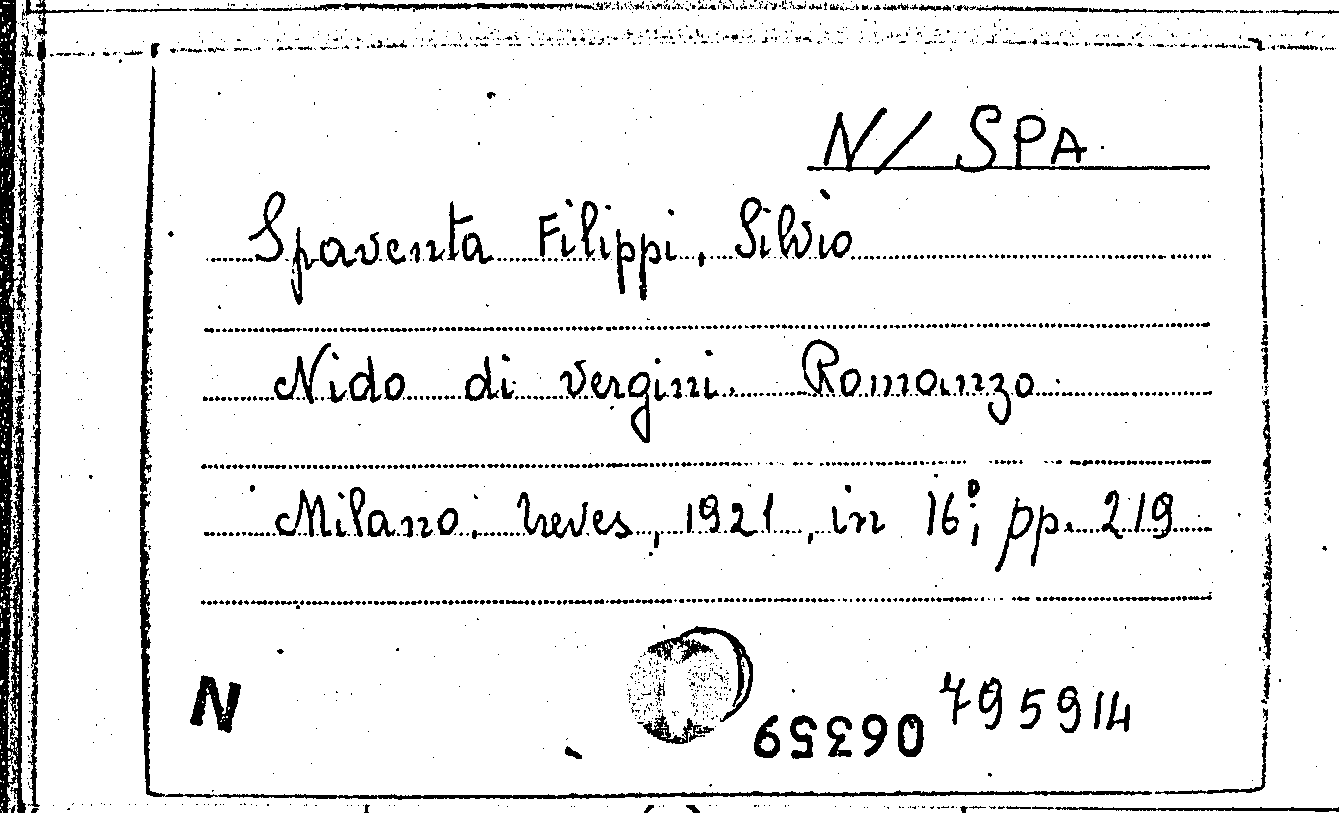 N/ SPA
Spaventa Filippi, Silvio
Nido di vergini. Romanzo
Milano, Treves, 1921, in 16°, pp. 219
N
06359 795914